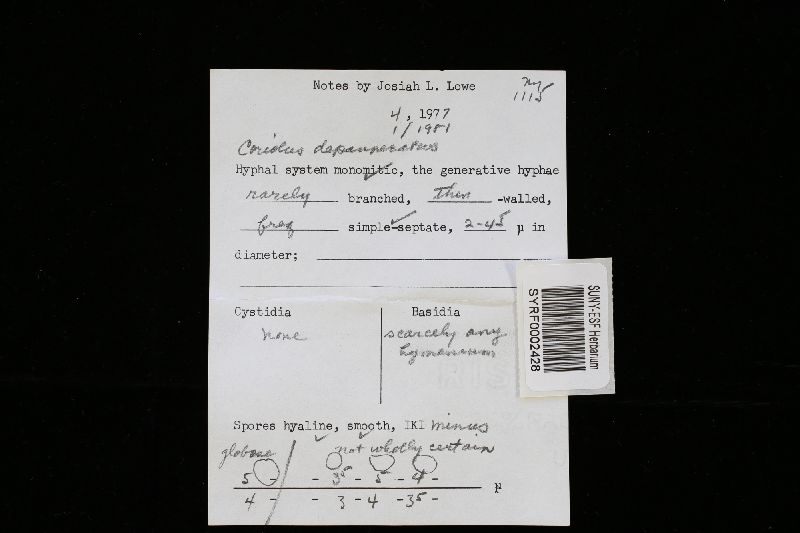 Notes by Josiah L. Lowe
Ny
1115
4, 1977
1/1981
Coriolus depauperatus
Hyphal system monomitic, the generative hyphae
rarely branched, thin -walled,
freq simple-septate, 2-4⁵ µ in
diameter;
Cystidia
none
Basidia
scarcely any
hymenium
Spores hyaline, smooth, IKI minus
globose
not wholly certain
5 - - 3⁵ - 5 - 4 -
4 - - 3 - 4 - 3⁵ - µ
SUNY-ESF Herbarium
SYRF0002428